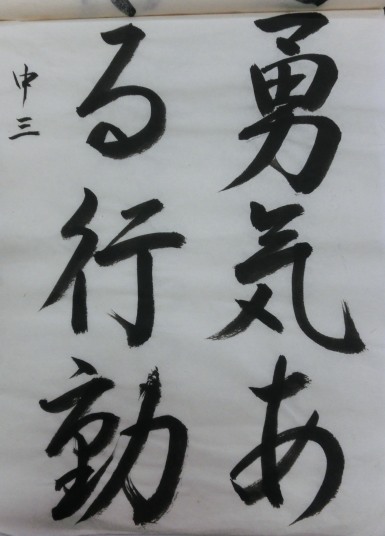 勇気あ
る行動
中三